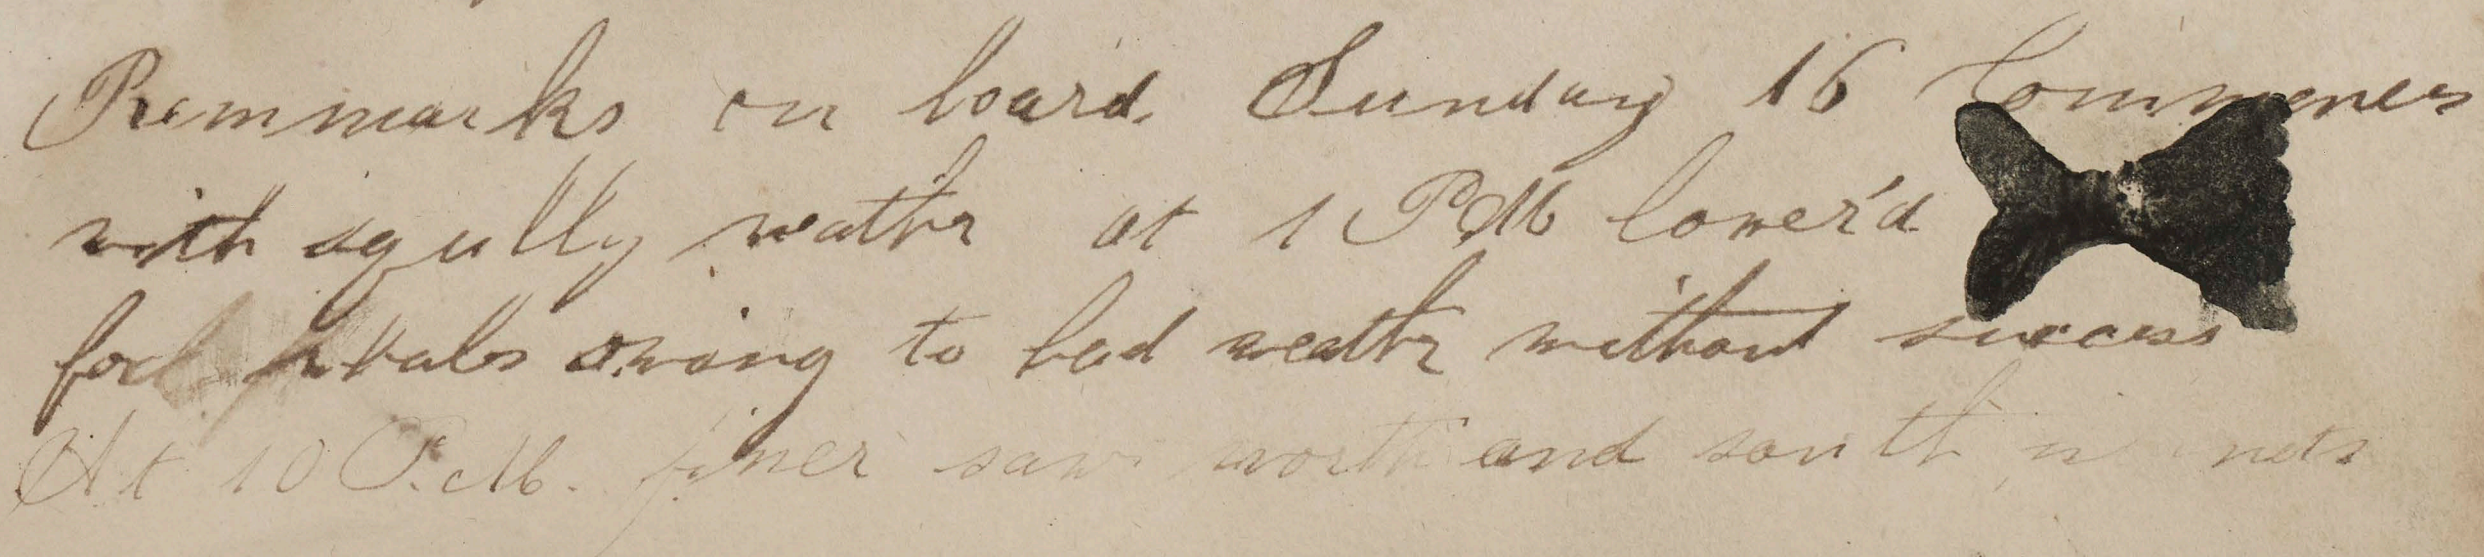 Remmarks on board. Sunday 16 Commences
with squlły weathr at 1 P.M lower'd
for whals owing to bad weathr without success
At 10 P.M. finer saw north and south